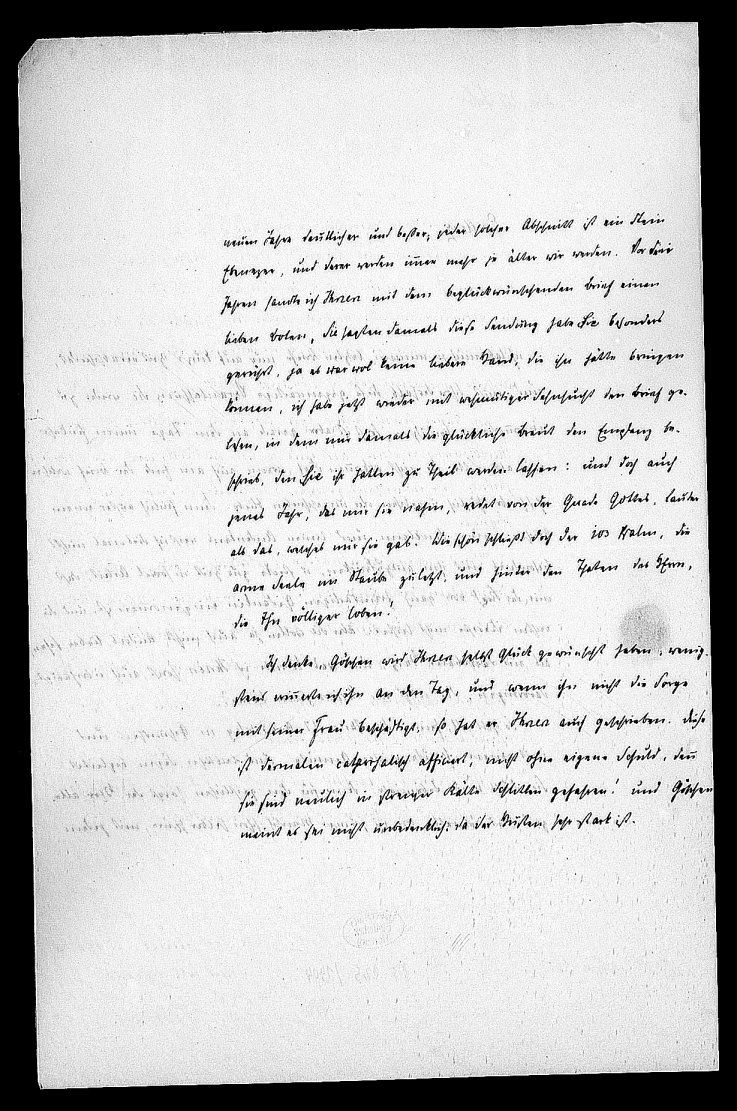 neuen Jahre deutlicher und beßer; jeder solcher Abschnitt ist ein Stein
Ebenezer, und derer werden immer mehr je älter wir werden. Vor drei
Jahren sandte ich Ihnen mit dem beglückwünschenden Brief einen
lieben Boten, Sie sagten damals diese Sendung habe Sie besonders
gerührt, ja es war wol keine liebere Hand, die ihn hätte bringen
können, ich habe jetzt wieder mit wehmütiger Sehnsucht den Brief ge-
lesen, in dem mir damals die glückliche Braut den Empfang be-
schrieb, den Sie ihr hatten zu Theil werden lassen: und doch auch
jenes Jahr, das mir sie nahm, redet von der Gnade Gottes, lauter
als das, welches mir sie gab. Wie schön schließt doch der 103 Psalm, die
arme Seele im Staube zuletzt, und hinter den Thaten des Herrn,
die Ihn völliger loben!
Ich denke Göschen wird Ihnen selbst Glück gewünscht haben, wenig-
stens erinnerte ich ihn an den Tag, und wenn ihn nicht die Sorge
mit seiner Frau beschäftigt, so hat er Ihnen auch geschrieben. Diese
ist dermalen catharrhalisch afficiert, nicht ohne eigene Schuld, denn
sie sind neulich in strenger Kälte Schlitten gefahren! und Göschen
meint es sei nicht unbedenklich, da der Husten sehr stark ist.